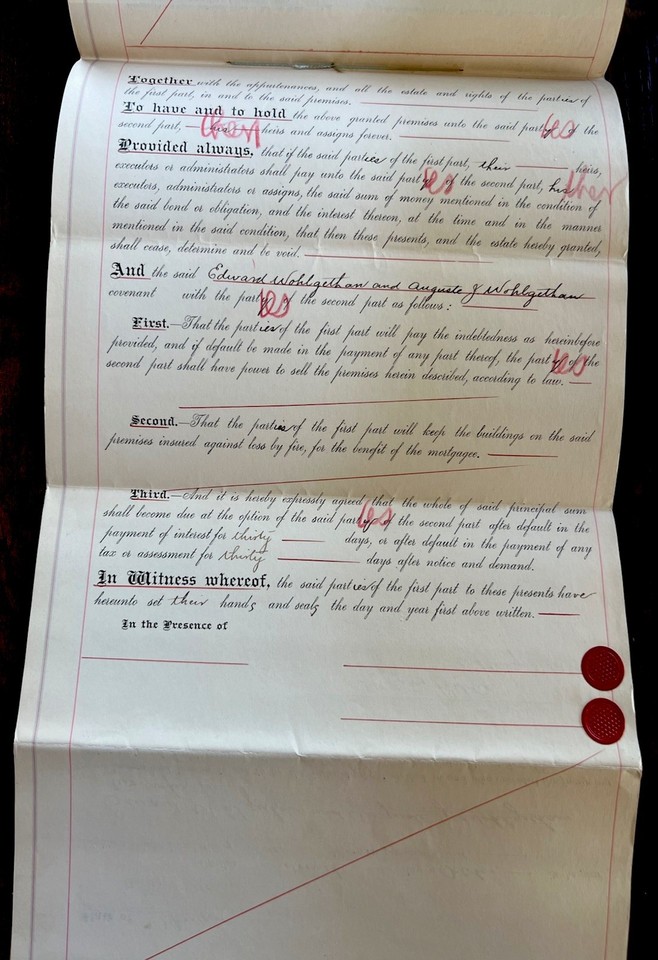 Together with the appurtenances, and all the estate and rights of the parties of
the first part, in and to the said premises.
To have and to hold the above granted premises unto the said parties of the
second part, their heirs and assigns forever.
Provided always, that if the said parties of the first part, their heirs,
executors or administrators shall pay unto the said parties of the second part, his their
executors, administrators or assigns, the said sum of money mentioned in the condition of
the said bond or obligation, and the interest thereon, at the time and in the manner
mentioned in the said condition, that then these presents, and the estate hereby granted,
shall cease, determine and be void.
And the said Edward Wohlgethan and Auguste J Wohlgethan
covenant with the parties of the second part as follows:
First.—That the parties of the first part will pay the indebtedness as hereinbefore
provided, and if default be made in the payment of any part thereof, the parties of the
second part shall have power to sell the premises herein described, according to law.
Second.—That the parties of the first part will keep the buildings on the said
premises insured against loss by fire, for the benefit of the mortgagee.
Third.—And it is hereby expressly agreed, that the whole of said principal sum
shall become due at the option of the said parties of the second part after default in the
payment of interest for thirty days, or after default in the payment of any
tax or assessment for thirty days after notice and demand.
In Witness whereof, the said parties of the first part to these presents have
hereunto set their hands and seals the day and year first above written.
In the Presence of